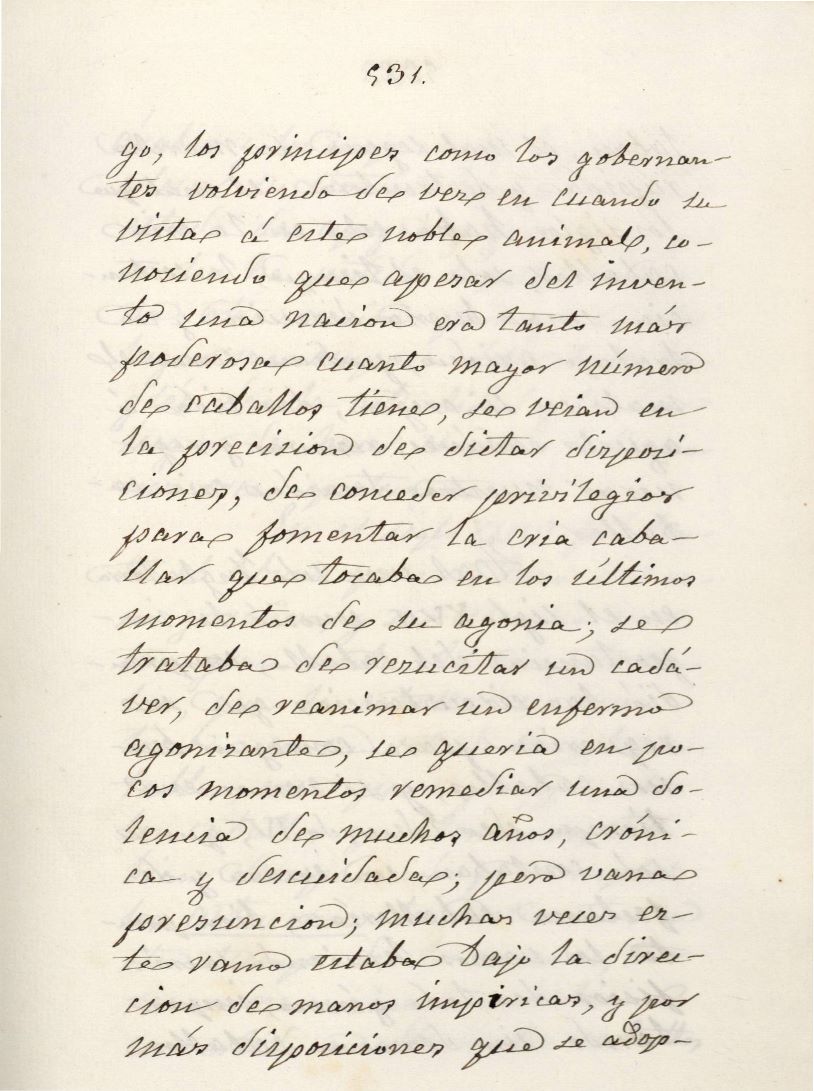 531.
go, los principes como los gobernan-
tes volviendo de vez en cuando su
vista á este noble animal, co-
nociendo que apesar del inven-
to una nacion era tanto más
poderosa cuanto mayor número
de caballos tiene, se veian en
la precision de dictar disposi-
ciones, de conceder privilegios
para fomentar la cria caba-
llar que tocaba en los últimos
momentos de su agonia; se
trataba de rezucitar un cadá-
ver, de reanimar un enfermo
agonizante, se queria en po-
cos momentos remediar una do-
lencia de muchos años, cróni-
ca y descuidada; pero vana
presuncion; muchas veces es-
te ramo estaba bajo la direc-
cion de manos impiricas, y por
más disposiciones que se adop-